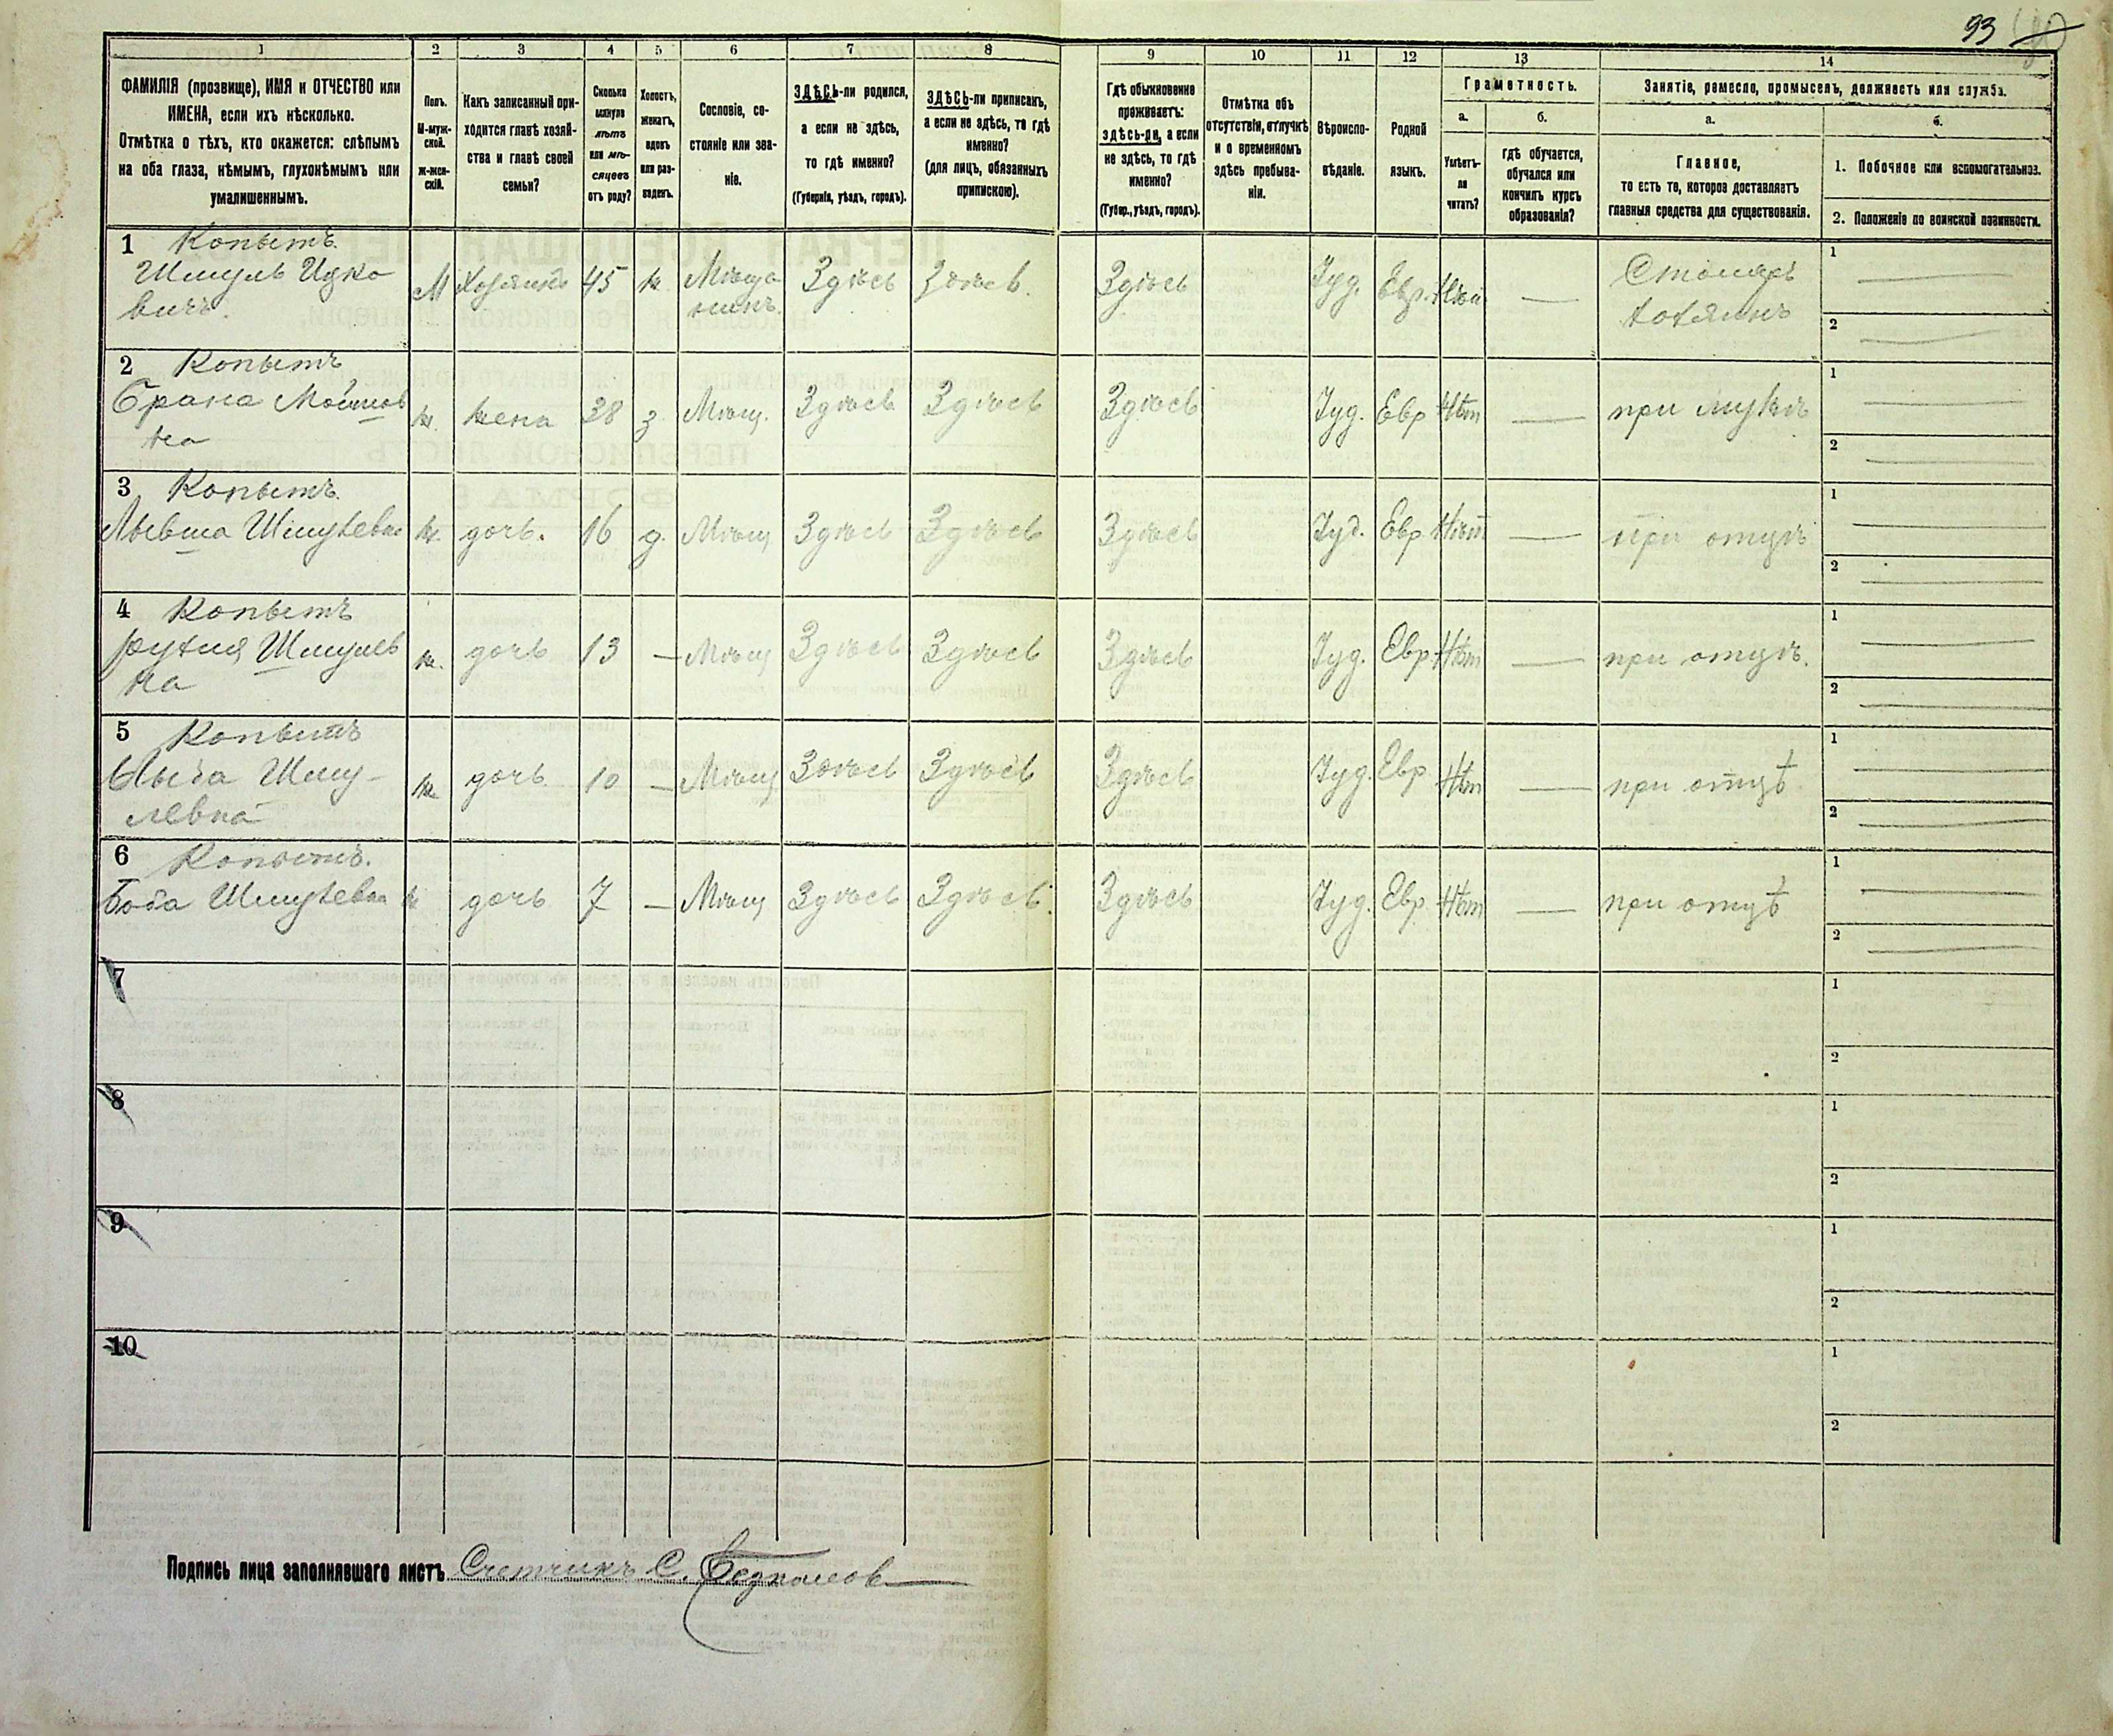 93
1 2 3 4 5 6 7 8 9 10 11 12 13 14
ФАМИЛІЯ (прозвище), ИМЯ и ОТЧЕСТВО или
ИМЕНА, если ихъ нѣсколько.
Отмѣтка о тѣхъ, кто окажется: слѣпымъ
на оба глаза, нѣмымъ, глухонѣмымъ или
умалишеннымъ.
Полъ.
М-муж-
ской.
Ж-жен-
скій.
Какъ записанный при-
ходится главѣ хозяй-
ства и главѣ своей
семьи?
Сколько
минуло
лѣтъ
или мѣ-
сяцевъ
отъ роду?
Холостъ,
женатъ,
вдовъ
или раз-
веденъ.
Сословіе, со-
стояніе или зва-
ніе.
ЗДѢСЬ-ли родился,
а если не здѣсь,
то гдѣ именно?
(Губернія, уѣздъ, городъ).
ЗДѢСЬ-ли приписанъ,
а если не здѣсь, то гдѣ
именно?
(для лицъ, обязанныхъ
припискою).
Гдѣ обыкновенно
проживаетъ:
здѣсь-ли, а если
не здѣсь, то гдѣ
именно?
(Губер., уѣздъ, городъ).
Отмѣтка объ
отсутствіи, отлучкѣ
и о временномъ
здѣсь пребыва-
ніи.
Вѣроиспо-
вѣданіе.
Родной
языкъ.
Грамотность.
а.
Умѣетъ-
ли
читать?
б.
гдѣ обучается,
обучался или
кончилъ курсъ
образованія?
Занятіе, ремесло, промыселъ, должность или служба.
а.
Главное,
то есть то, которое доставляетъ
главныя средства для существованія.
б.
1. Побочное или вспомогательное.
2. Положеніе по воинской повинности.
1 Копытъ 1
Шмуль Ицко
вичъ. М Хозяинъ 45 ж Мѣща
нинъ. Здѣсь Здѣсь. Здѣсь Іуд. Евр. Нѣт — Столяръ
хозяинъ 2
2 Копытъ 1
Брана Мошков
на ж. жена 38 з Мѣщ. Здѣсь Здѣсь Здѣсь Іуд. Евр Нѣт — при мужѣ 2
3 Копытъ. 1
Шмулевна ж. дочь. 16 д. Мѣщ Здѣсь Здѣсь Здѣсь Іуд. Евр Нѣт — при отцѣ 2
4 Копытъ 1
Шмулев
на ж. дочь 13 — Мѣщ Здѣсь Здѣсь Здѣсь Іуд. Евр. Нѣт — при отцѣ. 2
5 Копытъ 1
Шму-
левна ж. дочь 10 — Мѣщ Здѣсь Здѣсь Здѣсь Іуд. Евр. Нѣт — при отцѣ 2
6 Копытъ. 1
Боба Шмулевна ж дочь 7 — Мѣщ Здѣсь Здѣсь. Здѣсь Іуд. Евр. Нѣт — при отцѣ 2
7 1
2
8 1
2
9 1
2
10 1
2
Подпись лица заполнявшаго листъ Счетчикъ С.